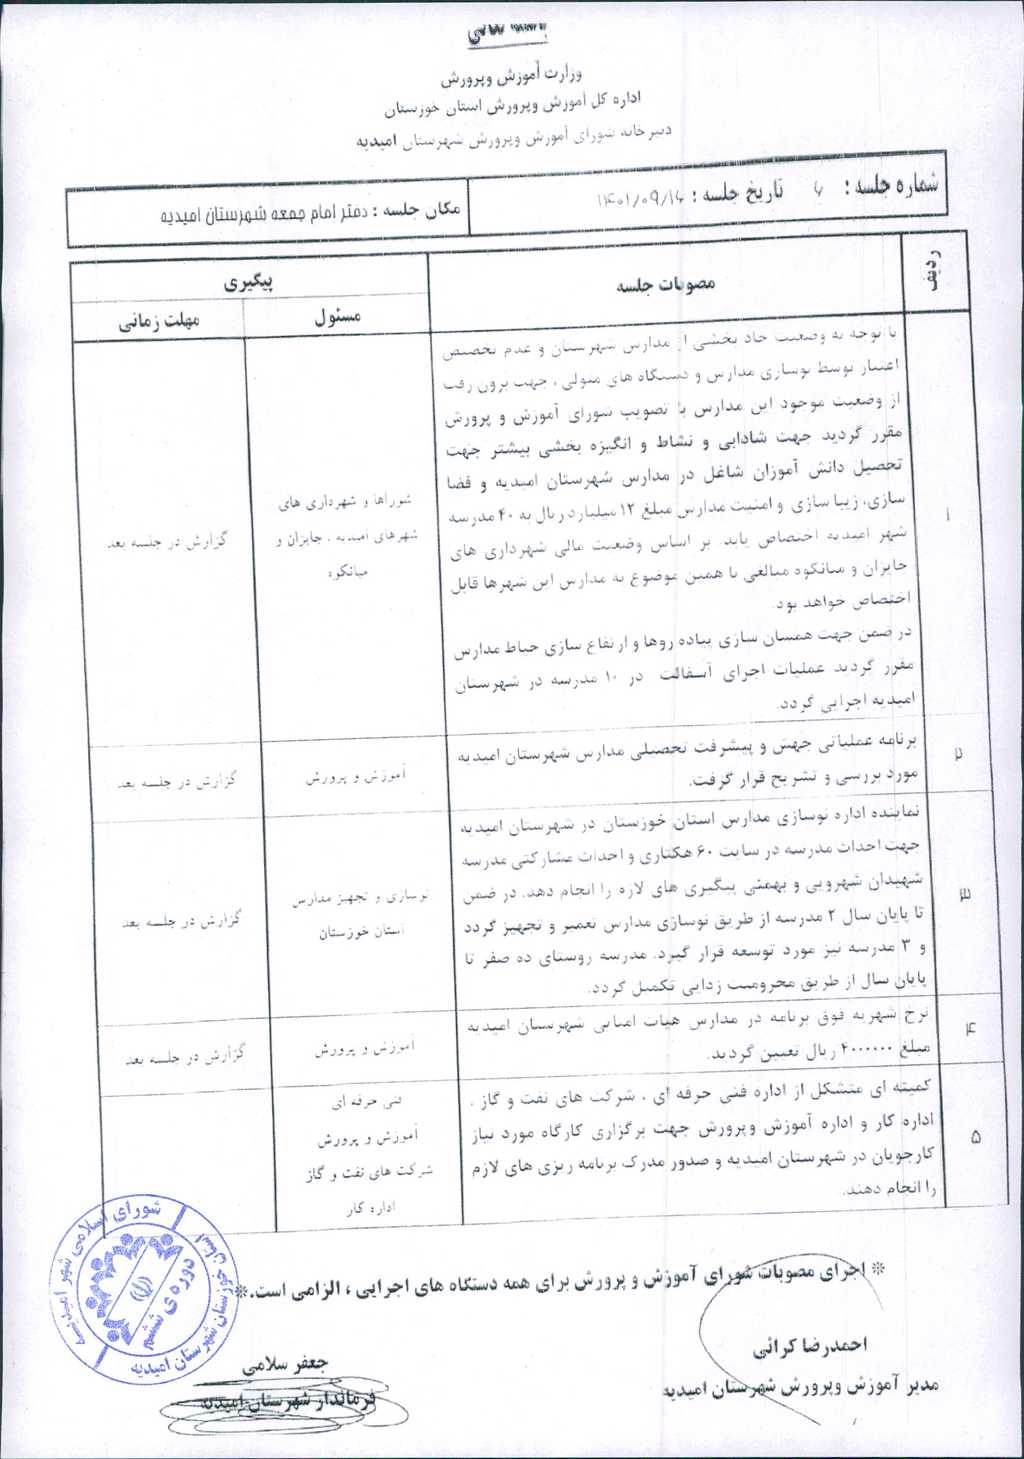 وزارت آموزش وپرورش
اداره کل آموزش وپرورش استان خوزستان
دبیرخانه شورای آموزش وپرورش شهرستان امیدیه
شماره جلسه : ۷ تاریخ جلسه : ۱۴۰۱/۰۹/۱۶
مکان جلسه : دفتر امام جمعه شهرستان امیدیه
ردیف
مصوبات جلسه
پیگیری
مسئول
مهلت زمانی
۱
با توجه به وضعیت حاد بخشی از مدارس شهرستان و عدم تخصیص
اعتبار توسط نوسازی مدارس و دستگاه های متولی ، جهت برون رفت
از وضعیت موجود این مدارس با تصویب شورای آموزش و پرورش
مقرر گردید جهت شادابی و نشاط و انگیزه بخشی بیشتر جهت
تحصیل دانش آموزان شاغل در مدارس شهرستان امیدیه و فضا
سازی، زیبا سازی و امنیت مدارس مبلغ ۱۲ میلیارد ریال به ۴۰ مدرسه
شهر امیدیه اختصاص یابد. بر اساس وضعیت مالی شهرداری های
جایزان و میانکوه مبالغی با همین موضوع به مدارس این شهرها قابل
اختصاص خواهد بود.
در ضمن جهت همسان سازی پیاده روها و ارتفاع سازی حیاط مدارس
مقرر گردید عملیات اجرای آسفالت در ۱۰ مدرسه در شهرستان
امیدیه اجرایی گردد.
شوراها و شهرداری های
شهرهای امیدیه ، جایزان و
میانکوه
گزارش در جلسه بعد
۲
برنامه عملیاتی جهش و پیشرفت تحصیلی مدارس شهرستان امیدیه
مورد بررسی و تشریح قرار گرفت.
آموزش و پرورش
گزارش در جلسه بعد
۳
نماینده اداره نوسازی مدارس استان خوزستان در شهرستان امیدیه
جهت احداث مدرسه در سایت ۶۰ هکتاری و احداث مشارکتی مدرسه
شهیدان شهرویی و بهمئی پیگیری های لازه را انجام دهد. در ضمن
تا پایان سال ۲ مدرسه از طریق نوسازی مدارس تعمیر و تجهیز گردد
و ۳ مدرسه نیز مورد توسعه قرار گیرد. مدرسه روستای ده صفر تا
پایان سال از طریق محرومیت زدایی تکمیل گردد.
نوسازی و تجهیز مدارس
استان خوزستان
گزارش در جلسه بعد
۴
نرخ شهریه فوق برنامه در مدارس هیات امنایی شهرستان امیدیه
مبلغ ۴۰۰۰۰۰۰ ریال تعیین گردید.
آموزش و پرورش
گزارش در جلسه بعد
۵
کمیته ای متشکل از اداره فنی حرفه ای ، شرکت های نفت و گاز ،
اداره کار و اداره آموزش وپرورش جهت برگزاری کارگاه مورد نیاز
کارجویان در شهرستان امیدیه و صدور مدرک برنامه ریزی های لازم
را انجام دهند.
فنی حرفه ای
آموزش و پرورش
شرکت های نفت و گاز
اداره کار
* اجرای مصوبات شورای آموزش و پرورش برای همه دستگاه های اجرایی ، الزامی است.*
احمدرضا کرائی
مدیر آموزش وپرورش شهرستان امیدیه
جعفر سلامی
فرماندار شهرستان امیدیه
شورای اسلامی شهر امیدیه
استان خوزستان شهرستان امیدیه
دوره ی ششم